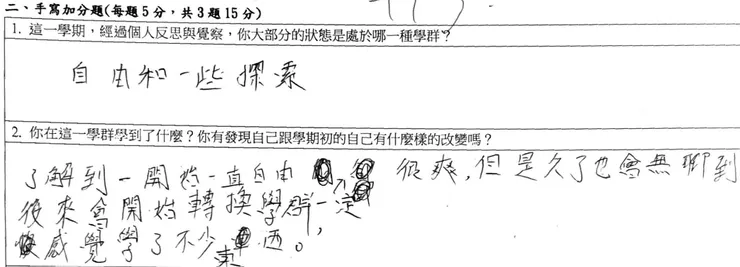 二、手寫加分題(每題5分，共3題15分)
1. 這一學期，經過個人反思與覺察，你大部分的狀態是處於哪一種學群？
自由和一些探索
2. 你在這一學群學到了什麼？你有發現自己跟學期初的自己有什麼樣的改變嗎？
了解到一開始一直自由 很爽,但是久了也會無聊到
後來會開始轉換學群,一定
感覺學了不少東西。